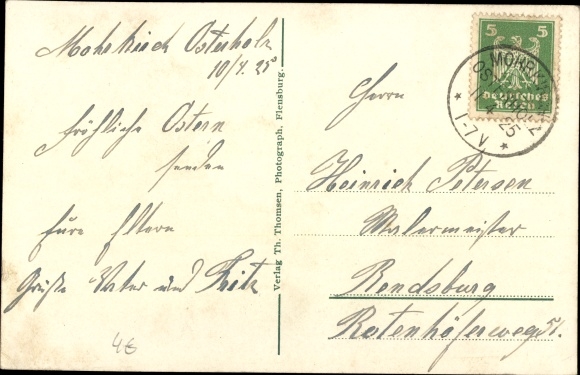 Mohrkirch Osterholz
10/4. 25
Fröhliche Ostern
senden
Eure Eltern
Grüße Vater und Fritz
4€
Verlag Th. Thomsen, Photograph, Flensburg.
5 5
Deutsches
Reich
MOHRKIRCH
OSTERHOLZ
11 4 25
* 1-7 V *
Herrn
Heinrich Petersen
Malermeister
Rendsburg
Rotenhöferweg 51.